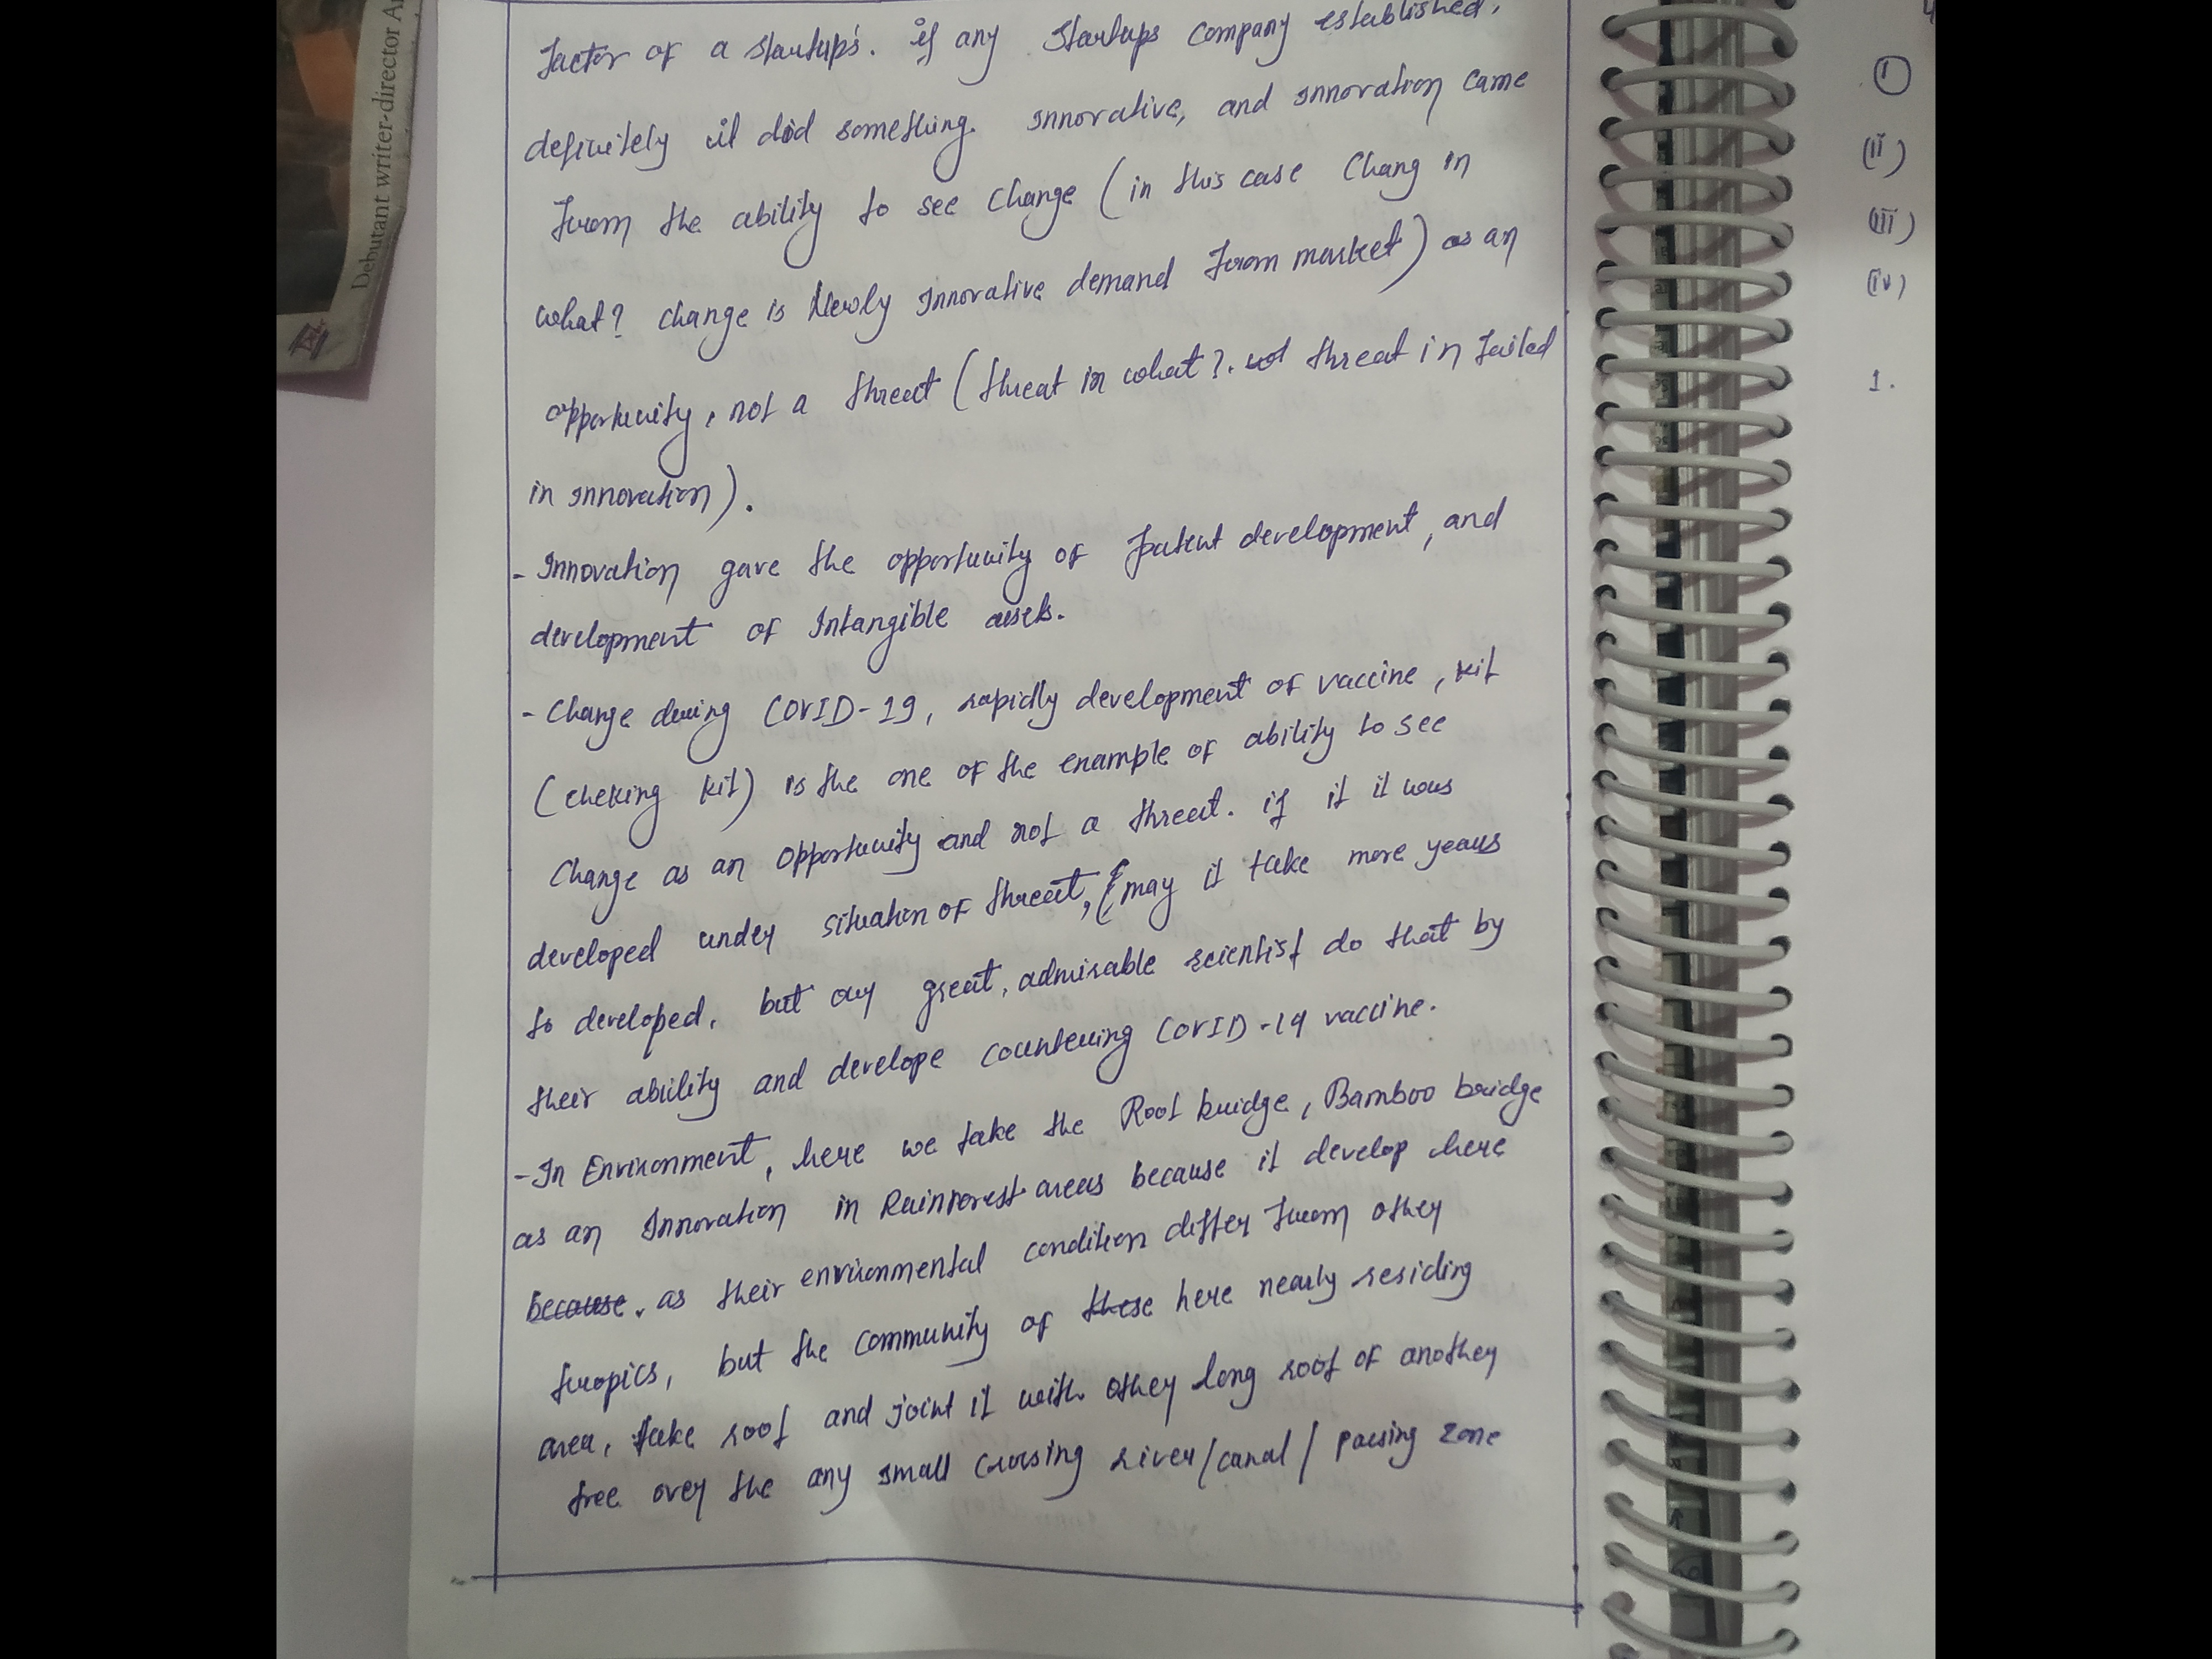 Debutant writer-director A
factor of a startup's. if any startups company established,
definitely it did something. innovative, and innovation came
from the ability to see change (in this case chang in
what? change is Newly innovative demand from market) as an
opportunity, not a threat (threat in what?. not threat in failed
in innovation).
- Innovation gave the opportunity of patent development, and
development of Intangible assets.
- Change during COVID-19, rapidly development of vaccine, kit
(cheking kit) is the one of the example of ability to see
Change as an opportunity and not a threat. if it it was
developed under situation of threat, may it take more years
to developed, but our great, admirable scientist do that by
their ability and develope countering COVID-19 vaccine.
- In Environment, here we take the Root bridge, Bamboo bridge
as an Innovation in Rainforest areas because it develop here
because. as their environmental condition differ from other
tropics, but the community of these here nearly residing
area, take root and joint it with other long root of another
tree over the any small crossing river/canal/ passing zone
(I)
(ii)
(iii)
(iv)
1.